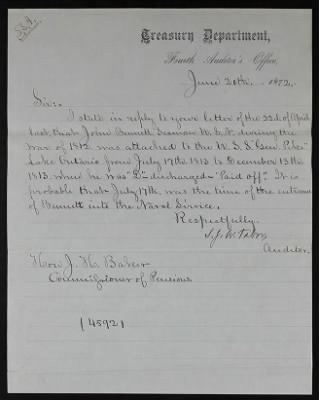 Treasury Department,
Fourth Auditor's Office,
June 20th. 1872.
Sir:
I state in reply to your letter of the 22d of April
last that John Bennett Seaman U.S.N. during the
War of 1812 was attached to the U.S.S. "Genl Pike"
Lake Ontario from July 17th 1813 to December 13th
1813. when he was "D" discharged "Paid off". It is
probable that July 17th. was the time of the entrance
of Bennett into the Naval Service.
Respectfully.
Auditor.
Hon J. H. Baker
Commissioner of Pensions
14592